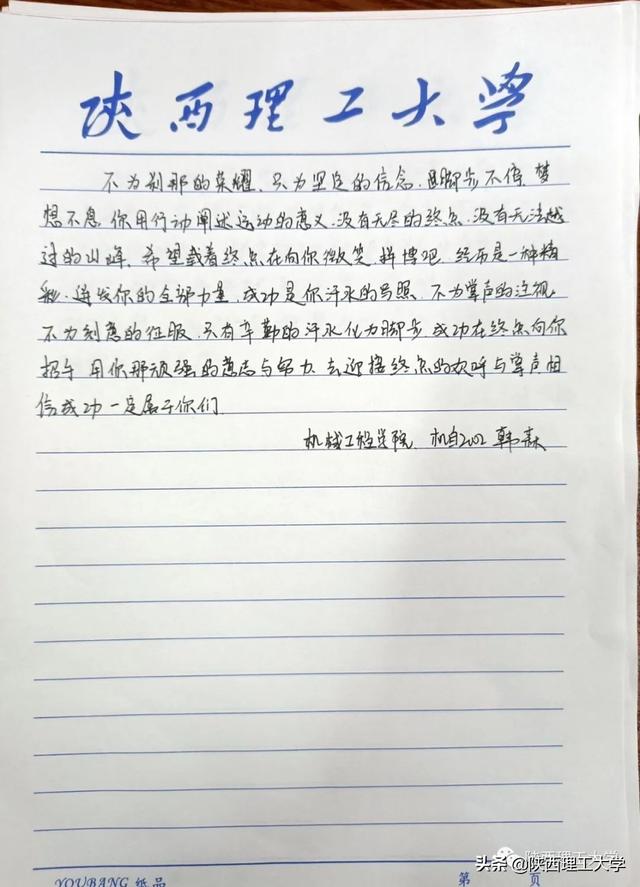 陕西理工大学
不为刹那的荣耀,只为坚定的信念.因脚步不停,梦
想不息.你用行动阐述运动的意义.没有无尽的终点.没有无法越
过的山峰.希望载着终点在向你微笑,拼搏吧.经历是一种精
彩.迸发你的全部力量,成功是你汗水的写照.不为掌声的注视.
不为刻意的征服.只有辛勤的汗水化为脚步.成功在终点向你
招手.用你那顽强的意志与努力.去迎接终点的欢呼与掌声相
信成功一定属于你们.
机械工程学院 机自2002 韩森
YOUBANG 纸品
第 页
陕西理工大学
头条 @陕西理工大学